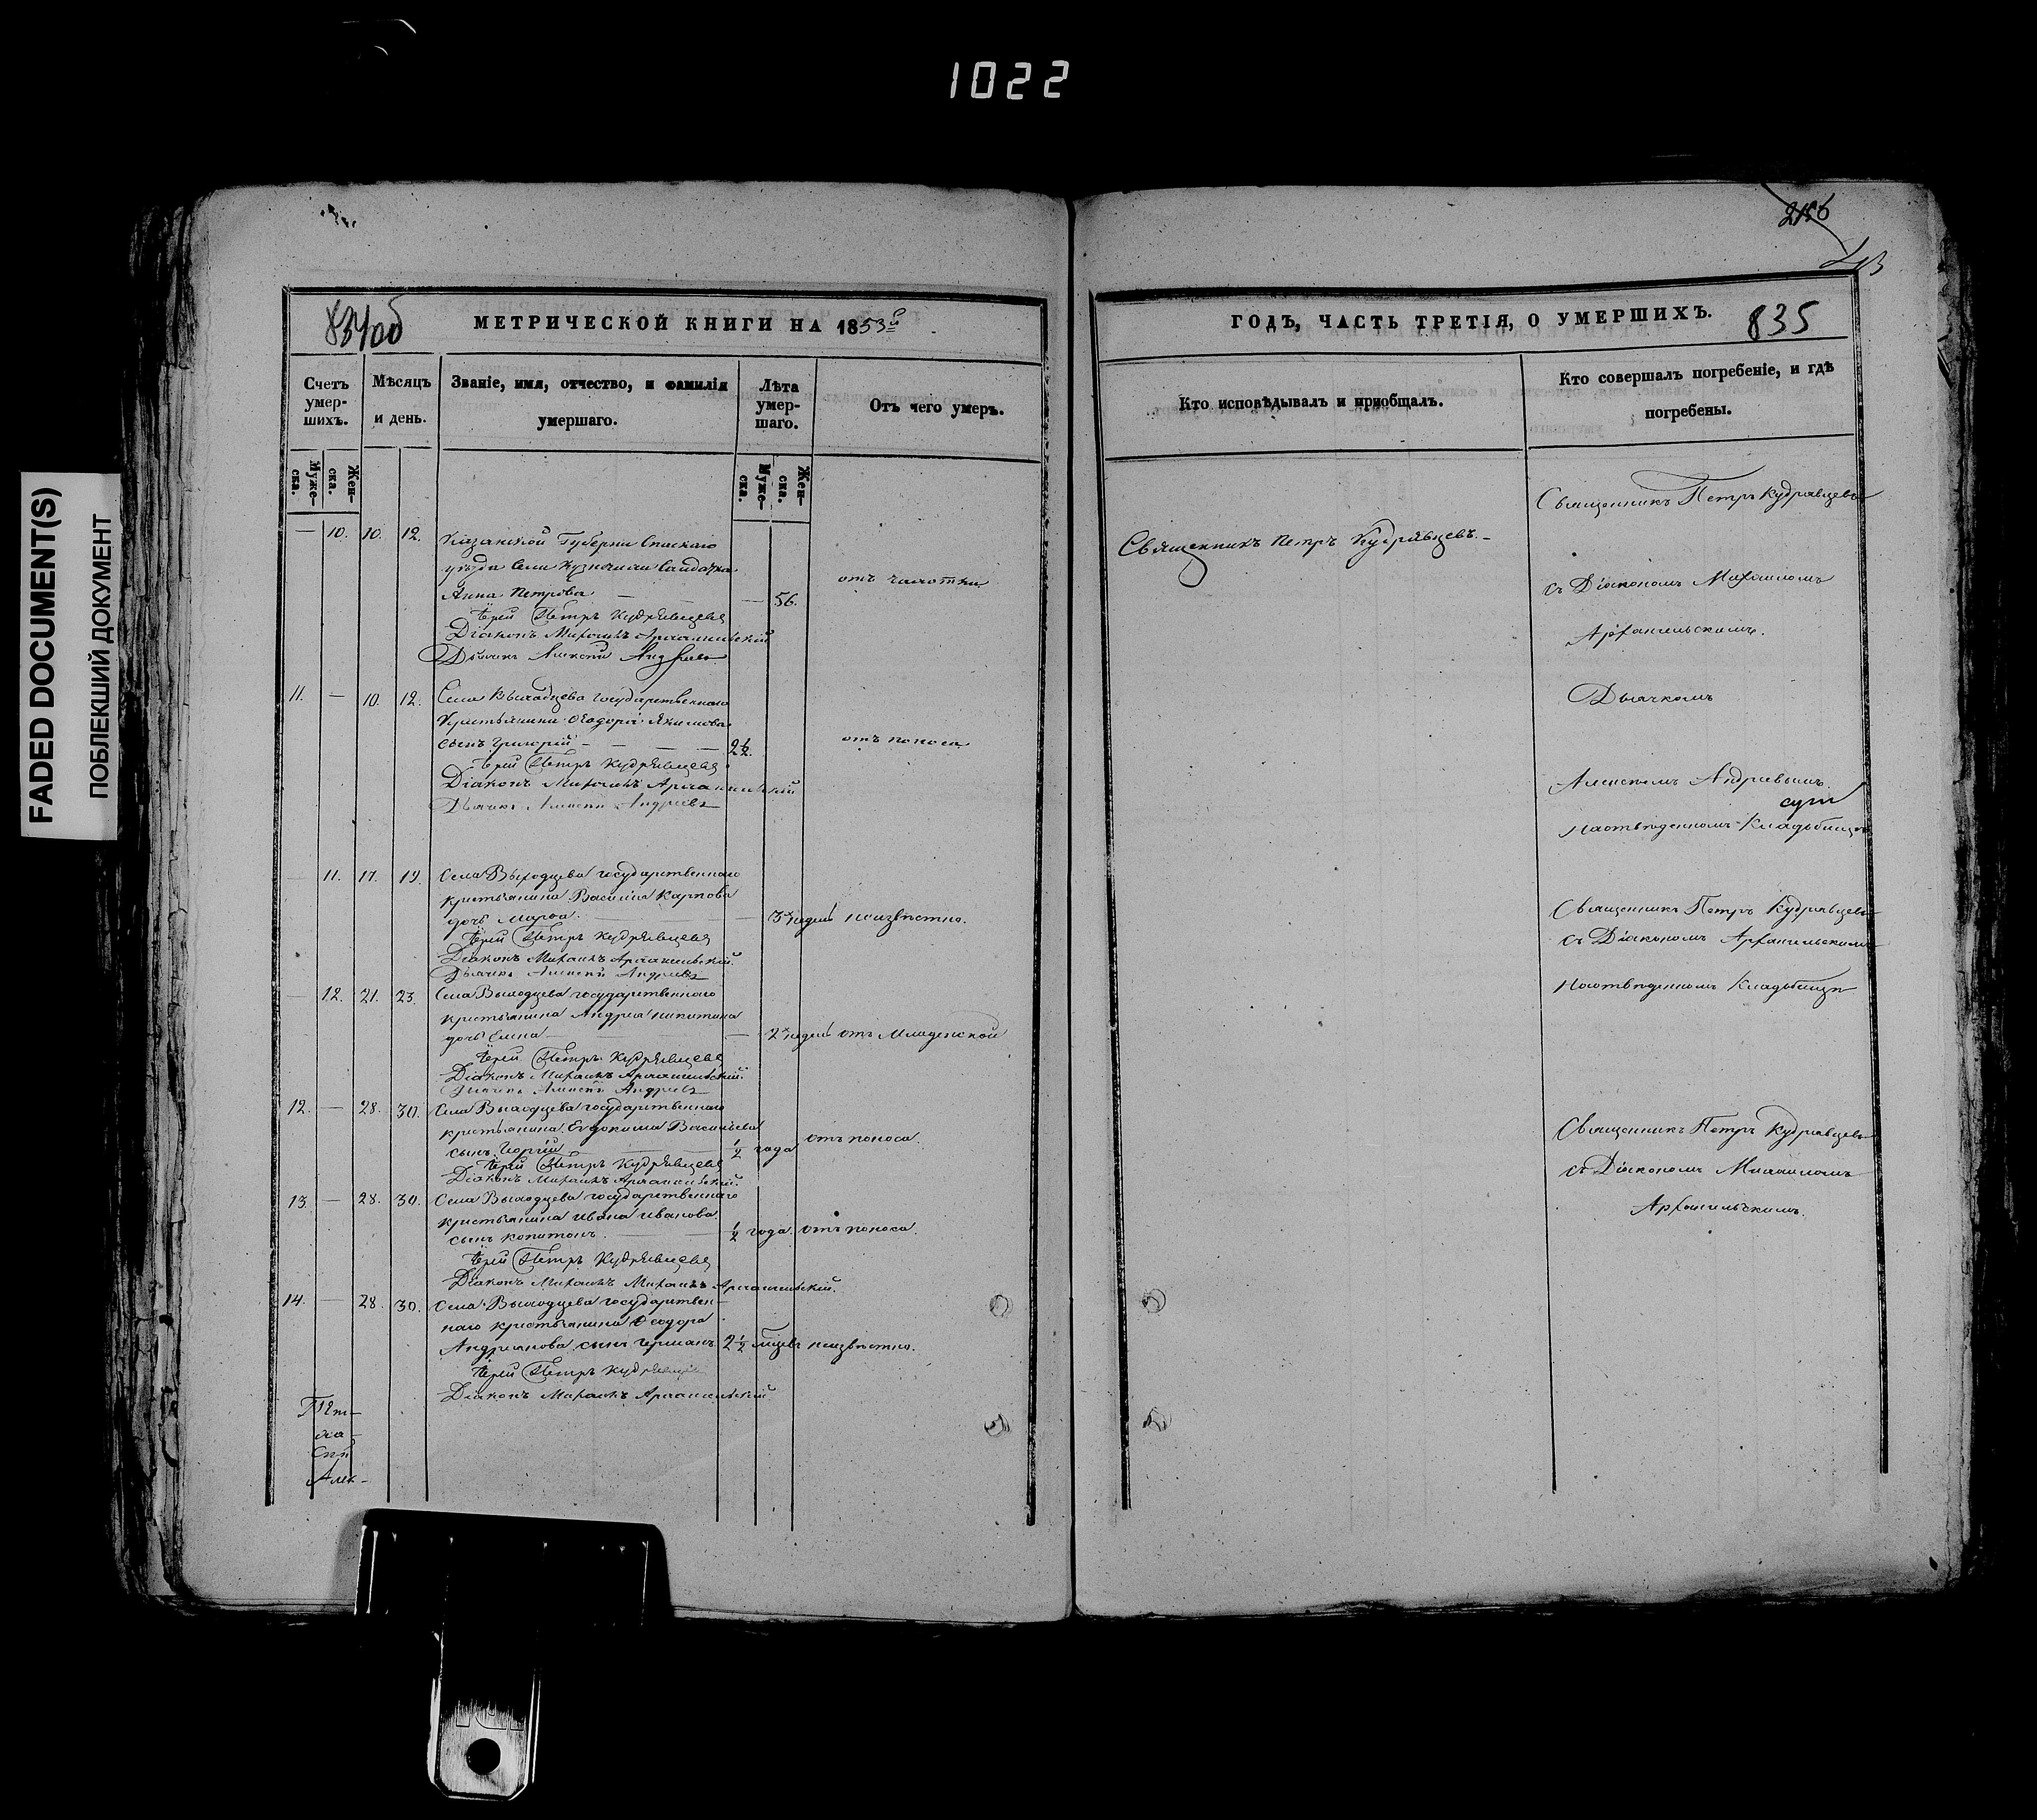 1022
FADED DOCUMENT(S)
ПОБЛЕКШИЙ ДОКУМЕНТ
834об
МЕТРИЧЕСКОЙ КНИГИ НА 1853й
Счетъ умер- шихъ.
Мѣсяцъ и день.
Званіе, имя, отчество, и фамилія умершаго.
Лѣта умер- шаго.
Отъ чего умеръ.
Муже- ска.
Жен- ска.
Муже- ска.
Жен- ска.
— 10. 10. 12. Казанской Губерніи Спаскаго
уѣзда Села
Анна Петрова — — — 56. отъ чахотки
Іерей Петръ Кудрявцевъ
Діаконъ Михаилъ Архангельскій
Дьячекъ Алексѣй Андреевъ
11. — 10. 12. Села Выходцева государственнаго
Крестьянина Ѳеодора Якимова
сынъ Григорій — — — 2½. отъ поноса
Іерей Петръ Кудрявцевъ
Діаконъ Михаилъ Архангельскій
Дьячекъ Алексѣй Андреевъ
— 11. 17. 19. Села Выходцева государственнаго
крестьянина Василія Карпова
дочь Марѳа. — 3х недель неизвѣстно.
Іерей Петръ Кудрявцевъ
Діаконъ Михаилъ Архангельскій.
Дьячекъ Алексѣй Андреевъ
— 12. 21. 23. Села Выходцева государственнаго
крестьянина Андрея Никитина
дочь Елена — 2х недель отъ Младенской
Іерей Петръ Кудрявцевъ
Діаконъ Михаилъ Архангельскій.
Дьячекъ Алексѣй Андреевъ
12. — 28. 30. Села Выходцева государственнаго
крестьянина Евдокима Васильева
сынъ Георгій ½ года отъ поноса.
Іерей Петръ Кудрявцевъ
Діаконъ Михаилъ Архангельскій.
13. — 28. 30. Села Выходцева государственнаго
крестьянина Ивана Иванова
сынъ Копитонъ. ½ года. отъ поноса.
Іерей Петръ Кудрявцевъ
Діаконъ Михаилъ Михаилъ Архангельскій.
14. — 28. 30. Села Выходцева государствен-
наго крестьянина Ѳеодора
Андреянова сынъ Германъ 2½ неизвѣстно.
Іерей Петръ Кудрявцевъ
Діаконъ Михаилъ Архангельскій
Алек-
835
ГОДЪ, ЧАСТЬ ТРЕТІЯ, О УМЕРШИХЪ.
Кто исповѣдывалъ и пріобщалъ.
Кто совершалъ погребеніе, и гдѣ погребены.
Священникъ Петръ Кудрявцевъ.
Священникъ Петръ Кудрявцевъ
съ Діакономъ Михаиломъ
Архангельскимъ.
Дьячкомъ
Алексѣемъ Андреевымъ.
Наотведенномъ Кладьбище
Священникъ Петръ Кудрявцевъ
съ Діакономъ Архангельскимъ
Наотведенномъ Кладьбище
Священникъ Петръ Кудрявцевъ
съ Діакономъ Михаиломъ
Архангельскимъ.